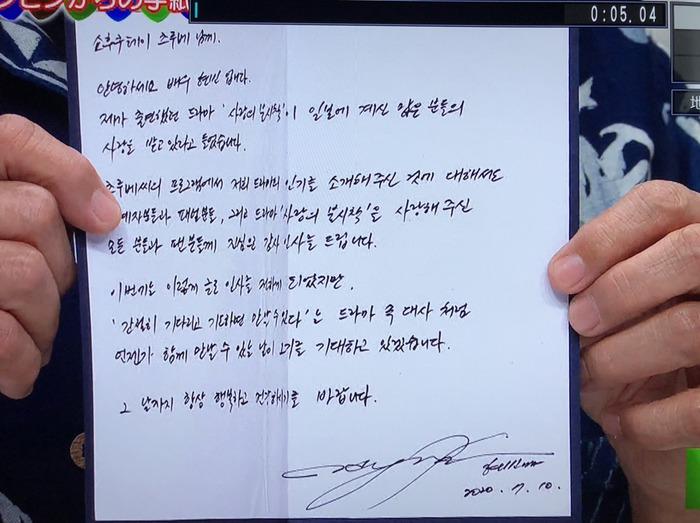 ンビンからの手紙
0:05.04
쇼후쿠테이 츠루베 님께.
안녕하세요 배우 현빈 입니다.
제가 출연했던 드라마 '사랑의 불시착'이 일본에 계신 많은 분들의
사랑을 받고 있다고 들었습니다.
츠루베씨의 프로그램에서 저희 드라마의 인기를 소개해 주신 것에 대해서도
제작분들과 패널분들, 그리고 드라마 '사랑의 불시착'을 사랑해 주신
모든 분들과 팬분들께 진심의 감사 인사를 드립니다.
이번에는 이렇게 글로 인사를 전하게 되었지만,
'간절히 기다리고 기대하면 만날 수 있다'는 드라마 속 대사 처럼
언젠가 함께 만날 수 있는 날이 오기를 기대하고 있겠습니다.
그 날까지 항상 행복하고 건강하시기를 바랍니다.
2020. 7. 10.
地